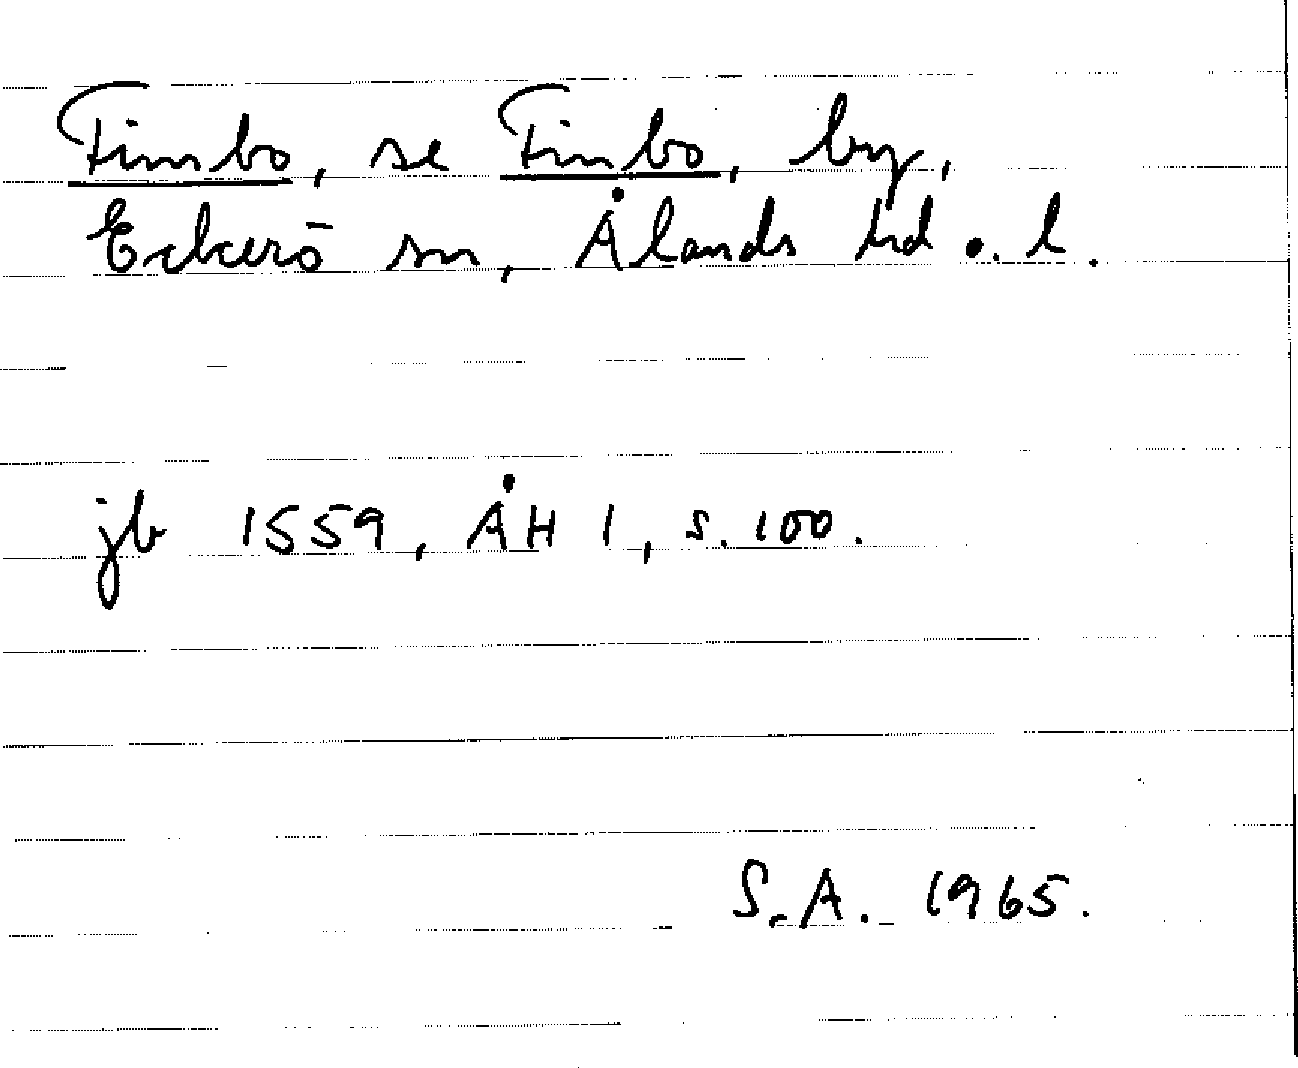 Fimbo, se Finbo, by,
Eckerö sn, Ålands hd o. l.
jb 1559, ÅH 1, s. 100.
S.A. 1965.